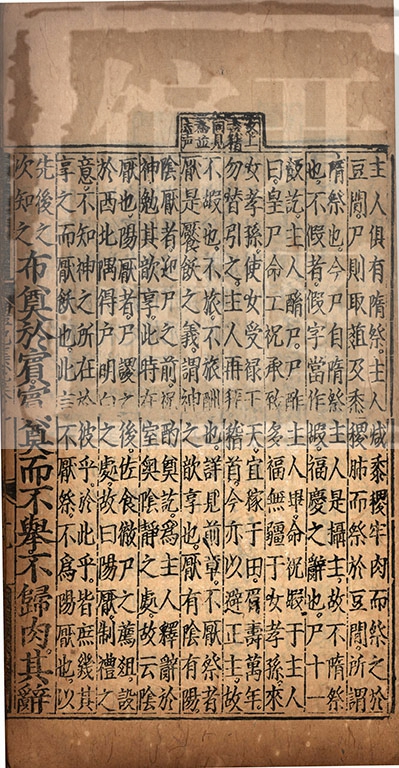 主人俱有隋祭。主人減黍稷牢肉而祭之於
豆閒。尸則取菹及黍稷肺而祭於豆閒。所謂
隋祭也。今尸自隋祭。主人是攝主。故不隋祭
也。不假者。假字當作嘏。福慶之辭也。尸十一
飯訖。主人酳尸。尸酢主人畢。命祝嘏于主人
曰。皇尸命工祝。承致多福無疆于女孝孫。來
女孝孫。使女受祿于天。宜稼于田。眉壽萬年。
勿替引之。主人再拜稽首。今亦以避正主。故
不嘏也。不旅。不旅酬也。詳見前章。不厭祭者。
厭是饜飫之義。謂神之歆享也。厭有陰有陽。
陰厭者。迎尸之前。酌奠訖。為主人釋辭於
神。勉其歆享。此時在室奧陰靜之處。故云陰
厭也。陽厭者。尸謖之後。佐食徹尸之薦俎。設
於西北隅。得戶明白之處。故曰陽厭。制禮之
意。不知神之所在。於彼乎。於此乎。皆庶幾其
享之而厭飫也。此言不厭祭。不為陽厭也。以
先後之
次知之
布奠於賓。賓奠而不舉。不歸肉。其辭